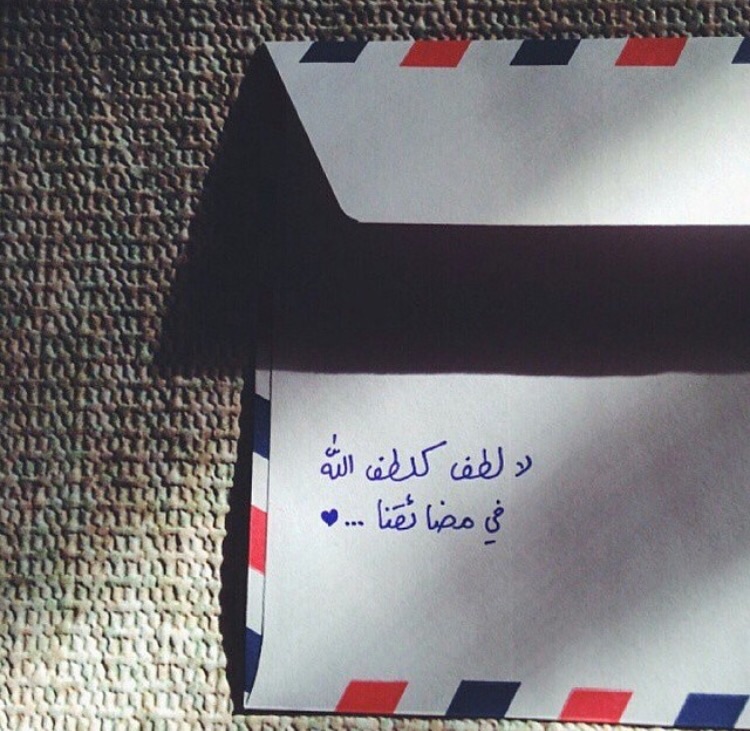 لا لطف كلطف الله
في مضائقنا ... ♥